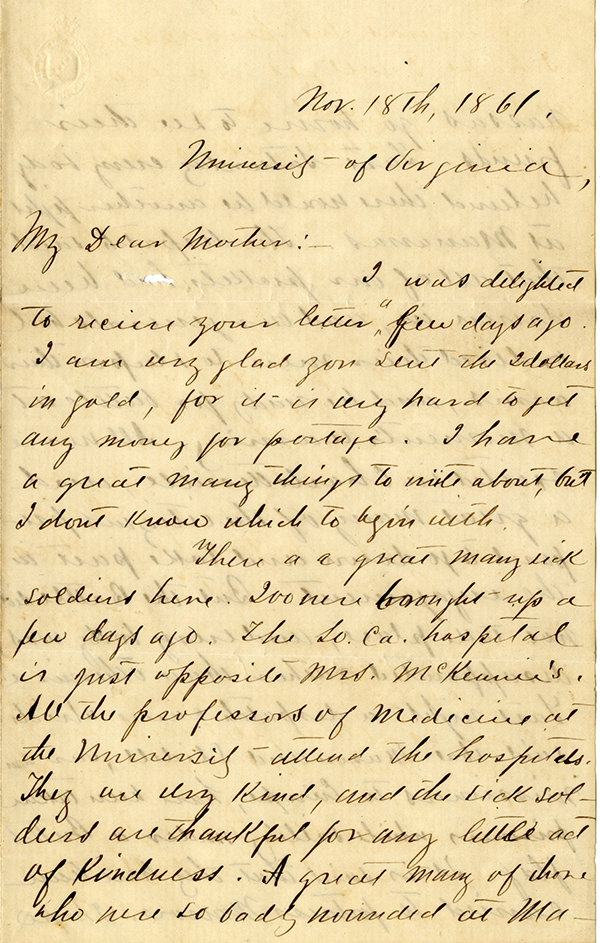 Nov. 18th, 1861,
University of Virginia,
My Dear Mother:-
I was delighted
to receive your letter "a few days ago.
I am very glad you sent the 2dollars
in gold, for it is very hard to get
any money for postage. I have
a great many things to write about, but
I dont know which to begin with.
There a a great many sick
soldiers here. 200 were brought up a
few days ago. The So. Ca. hospital
is just opposite Mrs. McKennie's.
All the professors of Medicine at
the University attend the hospitals.
They are very kind, and the sick sol-
diers are thankful for any little act
of kindness. A great many of those
who were so badly wounded at Ma-